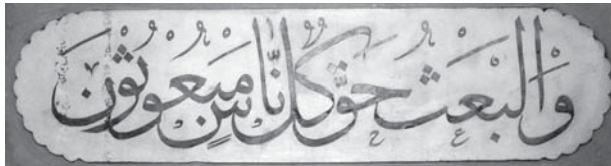 وَالْبَعْثُ حَقٌّ كُلُّ نَّاسٍ مَبْعُوثُونَ